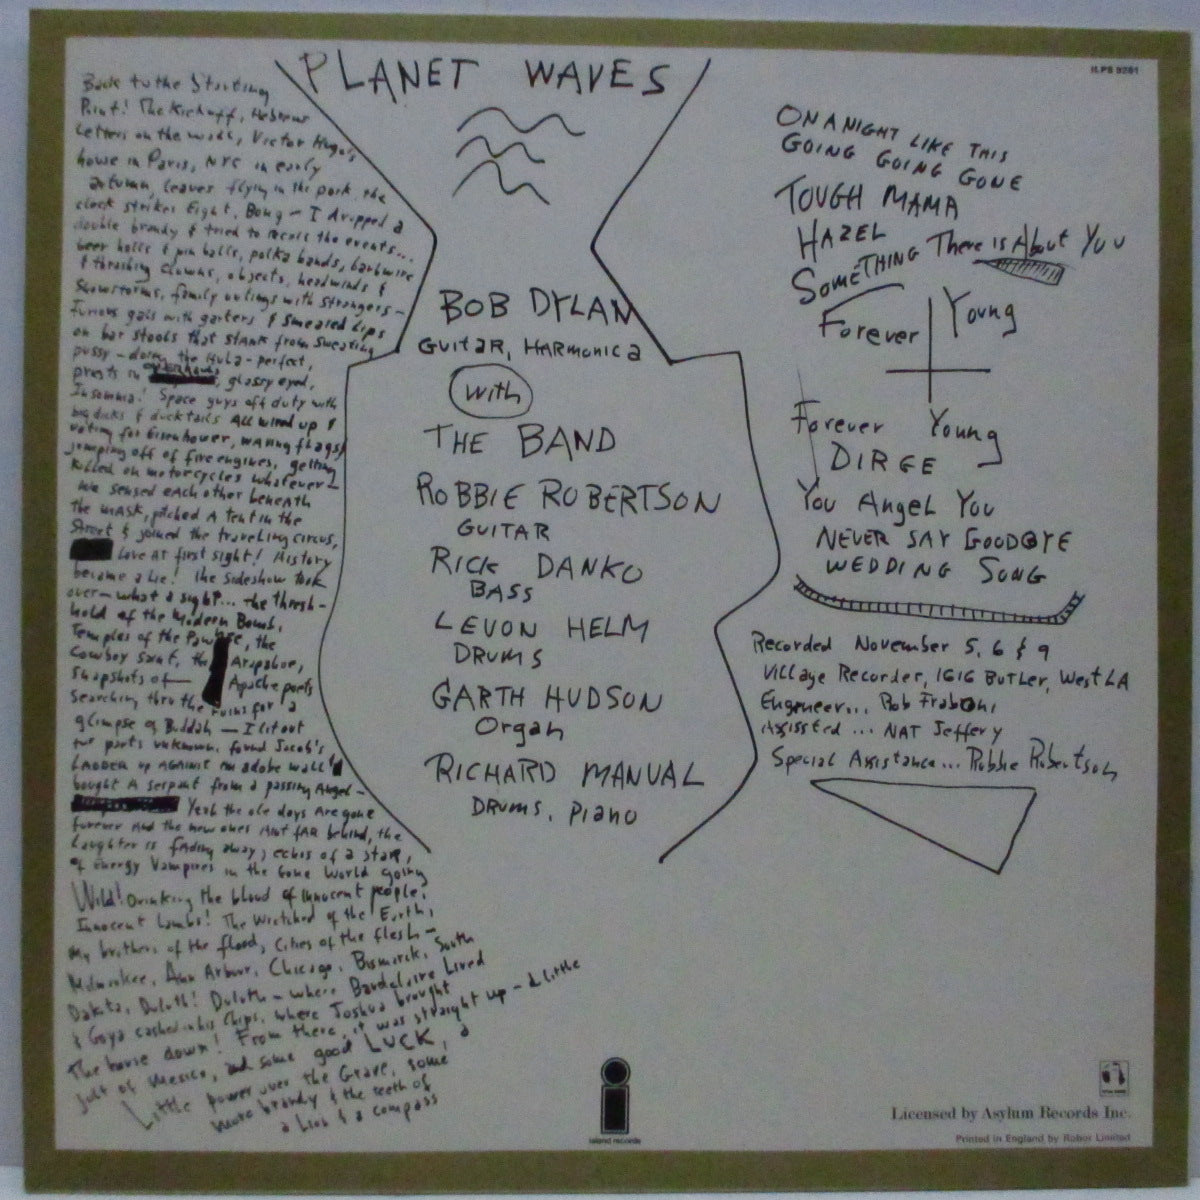 PLANET WAVES
ILPS 9261
Back to the Starting
Point! The Kickoff, Hebrew
Letters on the walls, Victor Hugo's
house in Paris, NYC in early
autumn, leaves flying in the park, the
clock strikes Eight, Bong - I dropped a
double brandy & tried to recall the events...
beer halls & pin balls, polka bands, barbwire
& thrashing clowns, objects, headwinds &
Snowstorms, family outings with Strangers -
Furious gals with garters & Smeared Lips
on bar stools that stank from sweating
pussy - doing the Hula - perfect,
priests in
glassy eyed,
Insomnia! Space guys off duty with
big dicks & ducktails All wired up &
voting for Eisenhower, waving flags &
jumping off of fire engines, getting
Killed on motorcycles whatever -
We sensed each other beneath
the mask, pitched A tent in the
Street & joined the traveling circus,
Love at first sight! History
became a Lie! the sideshow took
over - what a sight... the thresh-
hold of the Modern Bomb,
Temples of the Pawnee, the
Cowboy saint, the Arapahoe,
snapshots of - Apache poets
searching thru the ruins for a
glimpse of Buddah - I lit out
for parts unknown, found Jacob's
Ladder up against an adobe wall &
bought A serpent from a passing Angel -
Yeah the ole days Are gone
forever And the new ones Aint fAR behind, the
Laughter is fAding away, echos of a star,
of Energy Vampires in the Gone World going
Wild! Drinking the blood of innocent people,
Innocent Lambs! The Wretched of the Earth,
My brothers of the flood, Cities of the flesh -
Milwaukee, Ann Arbour, Chicago, Bismarck, South
Dakota, Duluth! Duluth - where Baudelaire Lived
& Goya cashed in his Chips, where Joshua brought
The house down! From there, it was straight up - a little
jolt of Mexico, and some good LUCK, a
Little power over the Grave, some
more brandy & the teeth of
a Lion & a compass
BOB DYLAN
GUITAR, HARMONICA
with
THE BAND
ROBBIE ROBERTSON
GUITAR
RICK DANKO
BASS
LEVON HELM
DRUMS
GARTH HUDSON
Organ
RICHARD MANUAL
DRUMS, Piano
ON A NIGHT LIKE THIS
GOING GOING GONE
TOUGH MAMA
HAZEL
SOMETHING There is About You
Forever Young
Forever Young
DIRGE
You Angel You
NEVER SAY GOODBYE
WEDDING SONG
Recorded November 5, 6 & 9
Village Recorder, 1616 Butler, West LA
Engeneer... Rob Fraboni
Assissted ... NAT Jeffery
Special Assistance... Robbie Robertson
island records
Licensed by Asylum Records Inc.
Printed in England by Robor Limited